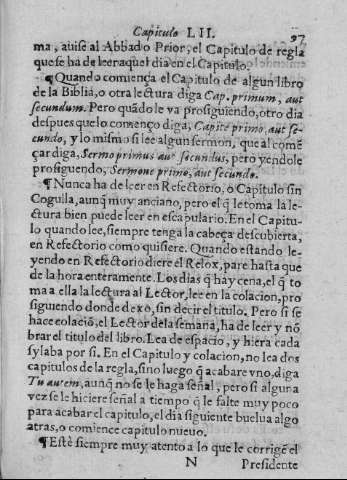 Capitulo LII. 97
ma, auise al Abbad o Prior, el Capitulo de regla
que se ha de leer aquel dia en el Capitulo.
¶ Quando comiença el Capitulo de algun libro
de la Biblia, o otra lectura diga Cap. primum, aut
secundum. Pero quãdo le va prosiguiendo, otro dia
despues que lo començo diga, Capite primo, aut se-
cundo, y lo mismo si lee algun sermon, que al comẽ
çar diga, Sermo primus aut secundus, pero yendole
prosiguendo, Sermone primo, aut secundo.
¶ Nunca ha de leer en Refectorio, o Capitulo sin
Cogulla, aunq̃ muy anciano, pero el q̃ le toma la le-
ctura bien puede leer en escapulario. En el Capitu-
lo quando lee, siempre tenga la cabeça descubierta,
en Refectorio como quisiere. Quando estando le-
yendo en Refectorio diere el Relox, pare hasta que
de la hora enteramente. Los dias q̃ hay cena, el q̃ to
ma a ella la lectura al Lector, lee en la colacion, pro
siguiendo donde dexò, sin decir el titulo. Pero si se
hace colaciõ, el Lector de la semana, ha de leer y nõ
brar el titulo del libro. Lea de espacio, y hiera cada
sylaba por si. En el Capitulo y colacion, no lea dos
capitulos de la regla, sino luego q̃ acabare vno, diga
Tu autem, aunq̃ no se le haga señal, pero si alguna
vez se le hiciere señal a tiempo q̃ le falte muy poco
para acabar el capitulo, el dia siguiente buelua algo
atras, o comience capitulo nueuo.
¶ Estè siempre muy atento a lo que le corrigẽ el
N Presidente